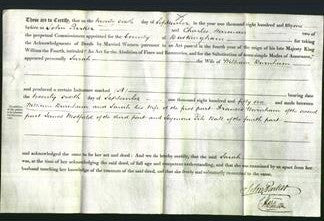 These are to Certify, that on the twenty sixth day of September in the year one thousand eight hundred and fifty one
before us John Parker and Charles Harman two of
the perpetual Commissioners appointed for the County of Buckingham for taking
the Acknowledgments of Deeds by Married Women, pursuant to an Act passed in the fourth year of the reign of his late Majesty King
William the Fourth, intituled "An Act for the Abolition of Fines and Recoveries, and for the Substitution of more simple Modes of Assurance,"
appeared personally Sarah the Wife of William Burnham
and produced a certain Indenture marked A
the twenty sixth day of September one thousand eight hundred and fifty one and made between
William Burnham and Sarah his Wife of the first part Francis Burnham of the second
part Westfield of the third part and Seymour of the fourth part
and acknowledged the same to be her act and deed: And we do hereby certify that the said Sarah
was, at the time of her acknowledging the said deed, of full age and competent understanding, and that she was examined by us apart from her
husband touching her knowledge of the contents of the said deed, and that she freely and voluntarily consented to the same.
John Parker